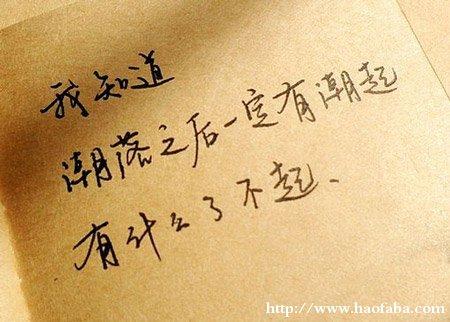 我知道
潮落之后一定有潮起
有什么了不起、
http://www.haofaba.com